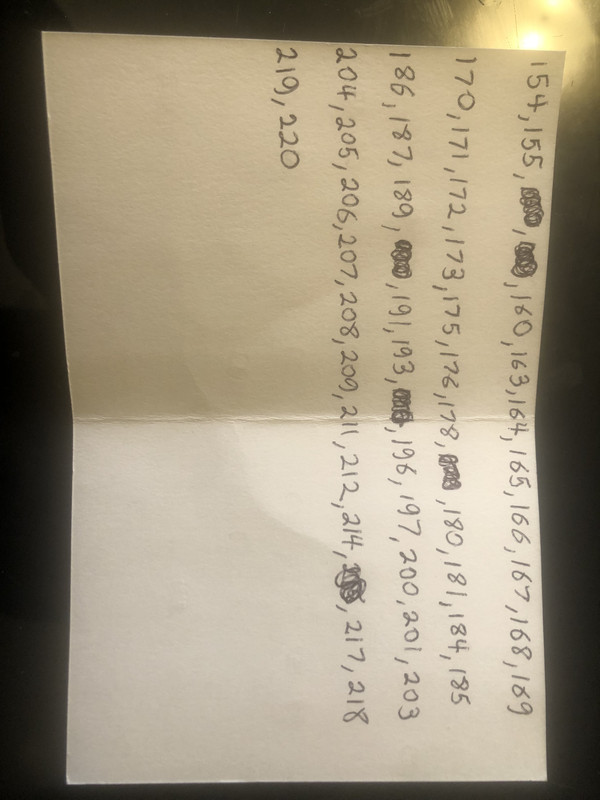 154,155, , ,160,163,164,165,166,167,168,169
170,171,172,173,175,176,178, ,180,181,184,185
186,187,189, ,191,193, ,196,197,200,201,203
204,205,206,207,208,209,211,212,214, ,217,218
219,220